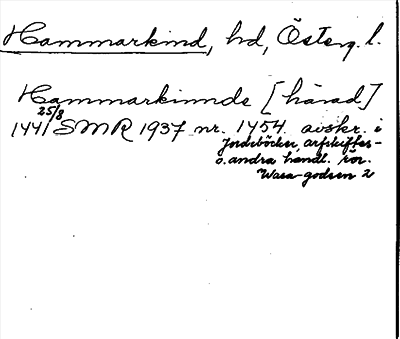 Hammarkind, hd, Österg. l.
Hammarkinnde [härad]
25/8
1441 SMR 1937 nr. 1454. avskr. i
Jordeböcker, arfskiftes-
o. andra handl. rör.
Wasa-godsen 2